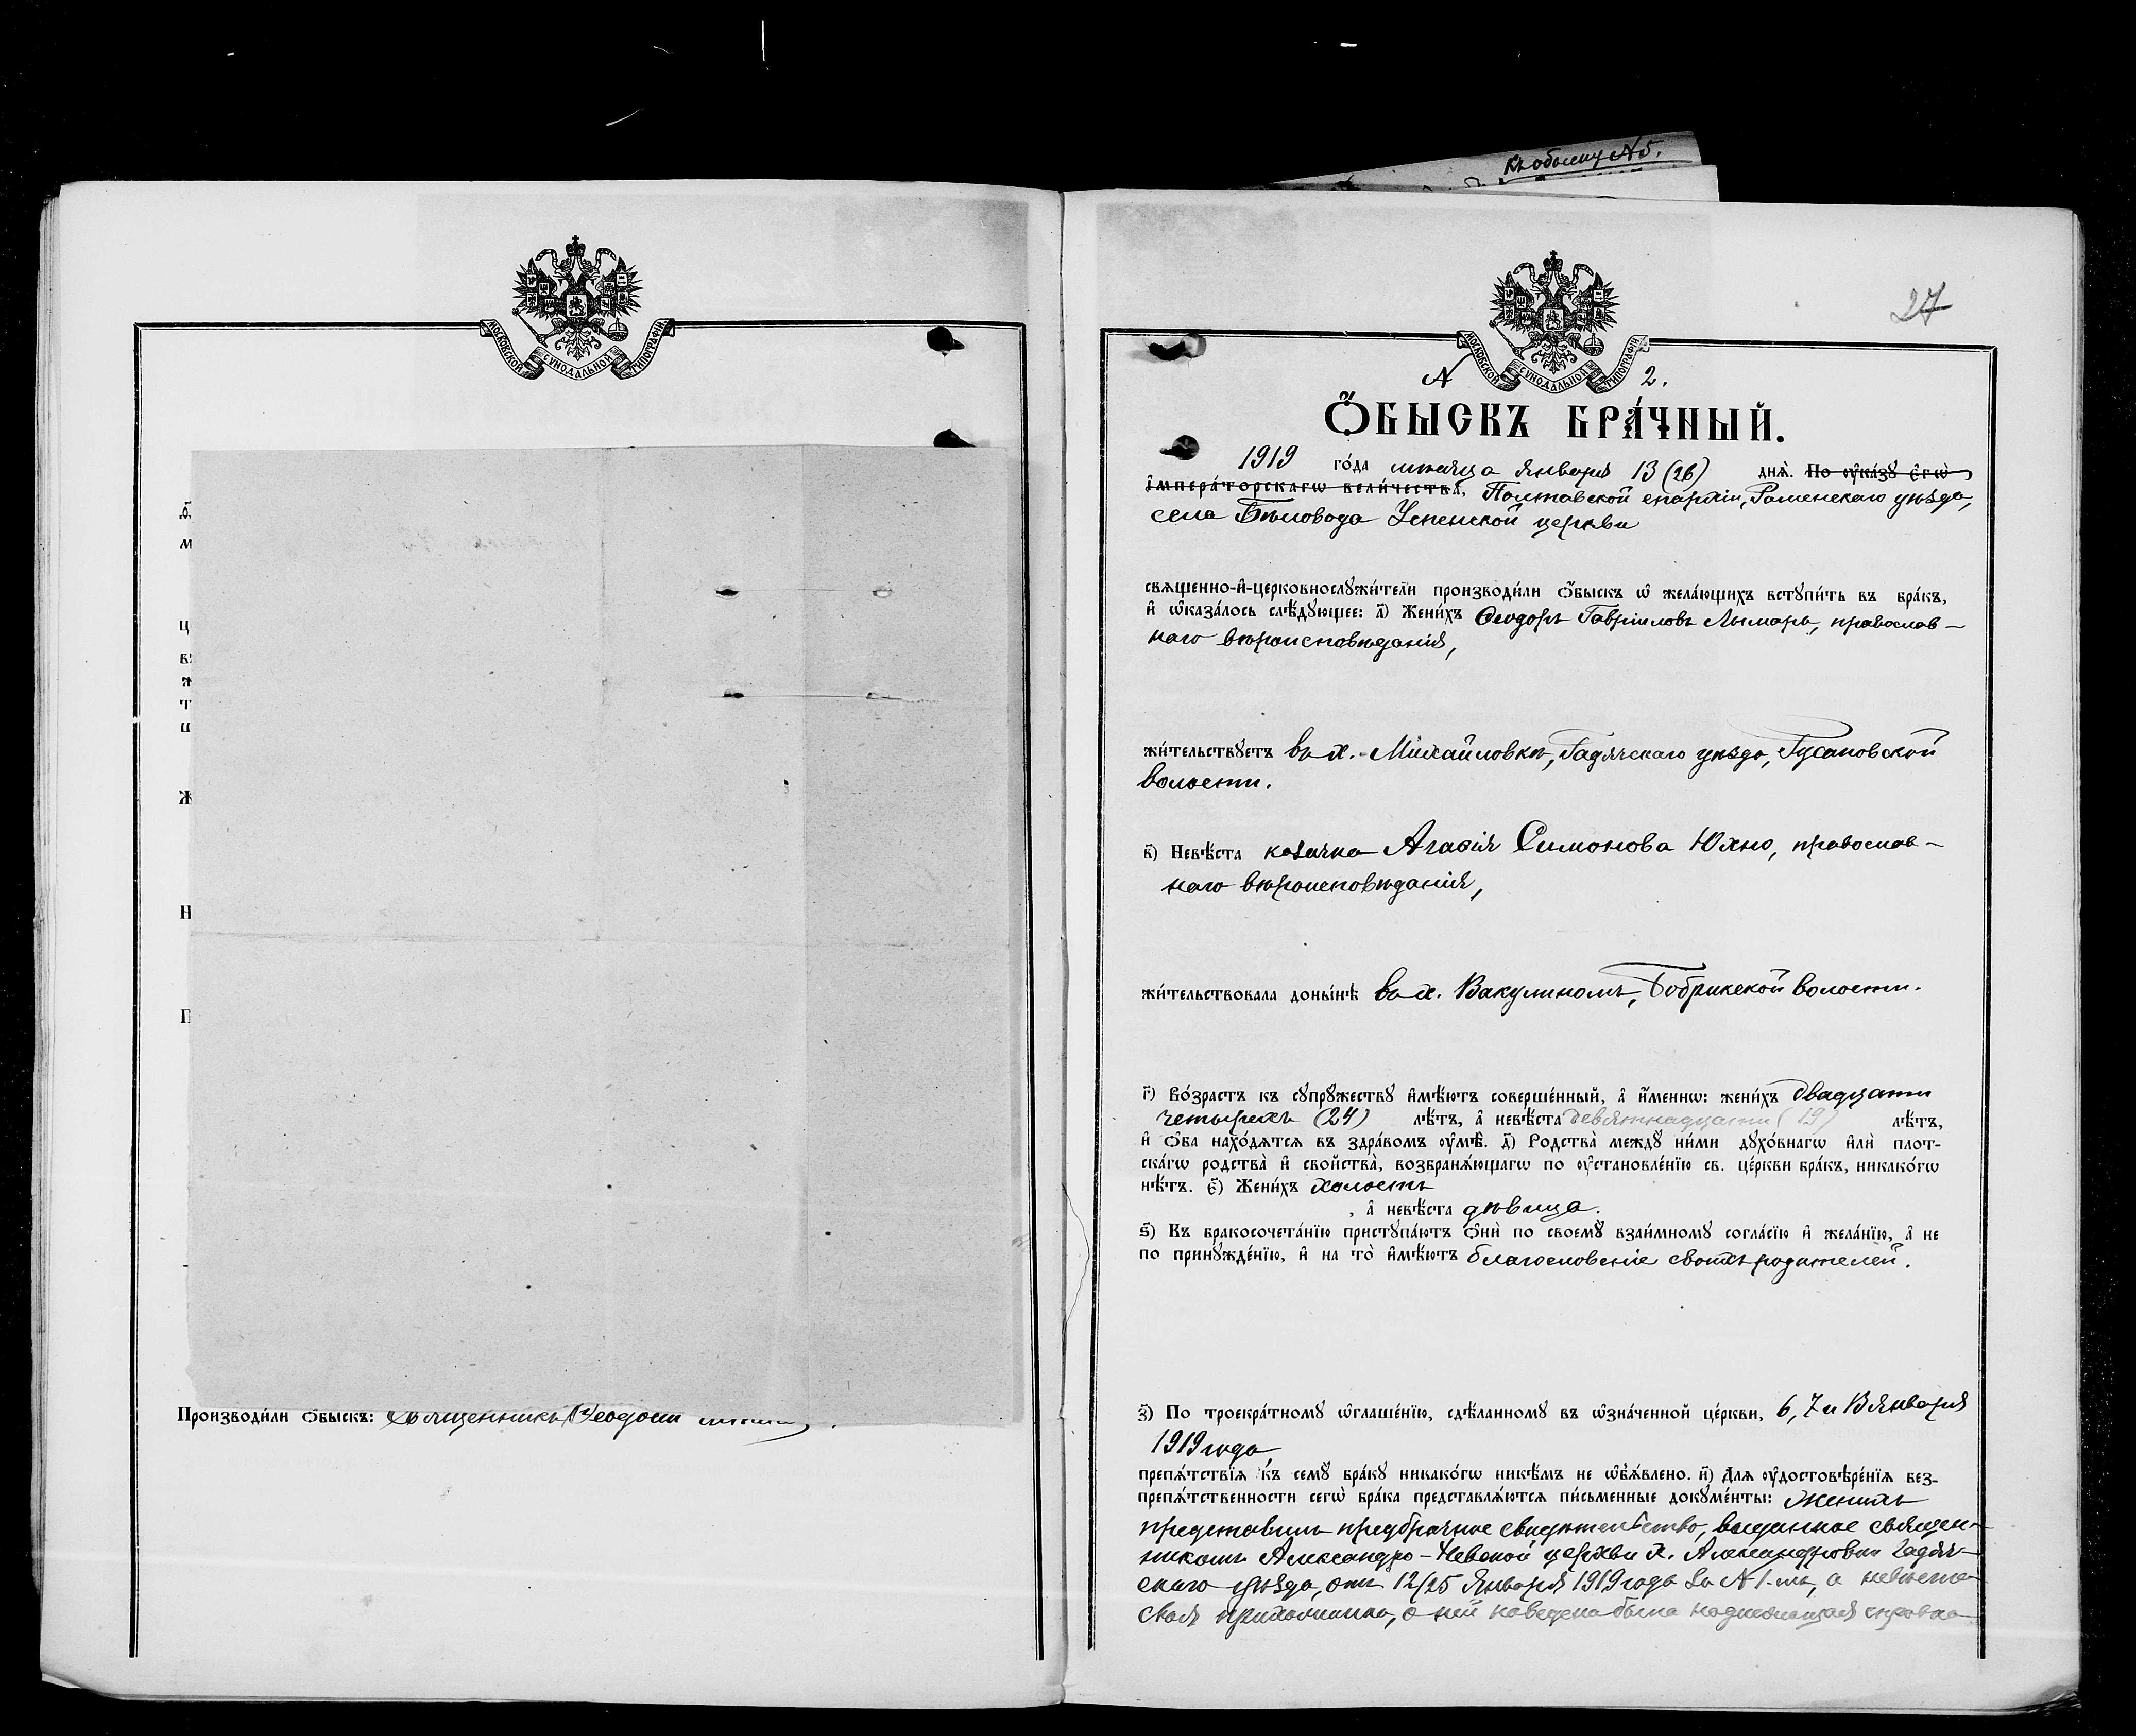 Къ обыску № 5.
МОСКОВСКОЙ СѴНОДАЛЬНОЙ ТИПОГРАФІИ
Д҃
м
ц
в
ж
т
ц
Ж
Н
П
Производи́ли ѻ҆́быскъ: Священникъ Ѳеодосій
27
МОСКОВСКОЙ СѴНОДАЛЬНОЙ ТИПОГРАФІИ
№ 2.
Ѻ҆́БЫСКЪ БРА́ЧНЫЙ.
1919 го́да мѣсяца Января 13 (26) днѧ̀. По ᲂу҆ка́зꙋ є҆гѡ̀
і҆мпера́торскагѡ вели́чества, Полтавской епархіи, Роменскаго уѣзда,
села Бѣловода Успенской церкви
свѧщенно-и҆-церковнослꙋжи́тели производи́ли ѻ҆́быскъ ѡ҆ жела́ющихъ встꙋпи́ть въ бра́къ,
и҆ ѡ҆каза́лось слѣ́дꙋющее: а҃) Жени́хъ Ѳеодоръ Гавріиловъ Лымарь, православ-
наго вѣроисповѣданія,
жи́тельствꙋетъ въ х. Михайловкѣ, Гадячскаго уѣзда, Русановской
волости.
в҃) Невѣ́ста козачка Агафія Симонова Юхно, православ-
наго вѣроисповѣданія,
жи́тельствовала доны́нѣ въ х. Вакулиномъ, Бобрикской волости.
г҃) Во́зрастъ къ сꙋпрꙋ́жествꙋ и҆мѣ́ютъ соверше́нный, а҆ и҆́меннѡ: жени́хъ двадцати
четырехъ (24) лѣ́тъ, а҆ невѣ́ста девятнадцати (19) лѣ́тъ,
и҆ ѻ҆́ба нахо́дѧтсѧ въ здра́вомъ ᲂу҆мѣ̀. д҃) Родства̀ междꙋ̀ ни́ми дꙋхо́внагѡ и҆лѝ плот-
ска́гѡ родства̀ и҆ свойства̀, возбранѧ́ющагѡ по ᲂу҆становле́нїю св. це́ркви бра́къ, никако́гѡ
нѣ́тъ. є҃) Жени́хъ холостъ
, а҆ невѣ́ста дѣвица.
ѕ҃) Въ бракосочета́нїю пристꙋпа́ютъ ѻ҆нѝ по своемꙋ̀ взаи́мномꙋ согла́сїю и҆ жела́нїю, а҆ не
по принꙋжде́нїю, и҆ на то̀ и҆мѣ́ютъ благословеніе своихъ родителей.
з҃) По троекра́тномꙋ ѡ҆глаше́нїю, сдѣ́ланномꙋ въ ѡ҆зна́ченной це́ркви, 6, 7 и 13 Января
1919 года,
препѧ́тствїѧ къ семꙋ̀ бра́кꙋ никако́гѡ никѣ́мъ не ѡ҆б̾ѧ́влено. и҃) Длѧ ᲂу҆достовѣре́нїѧ без-
препѧ́тственности сегѡ̀ бра́ка представлѧ́ютсѧ пи́сьменные докꙋме́нты: Женихъ
представилъ предбрачное свидѣтельство, выданное священ-
никомъ Александро-Невской церкви х. Александровки Гадяч-
скаго уѣзда, отъ 12/25 Января 1919 года за № 1-мъ, а невѣста
своя прихожанка, о ней наведена была надлежащая справка